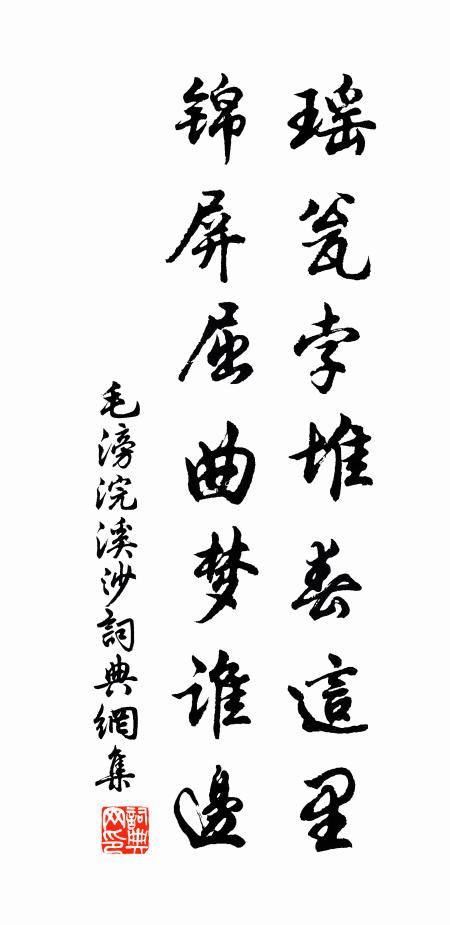 瑶瓮孛堆春這里
锦屏屈曲梦谁邊
毛滂浣溪沙詞典網集
詞典网印